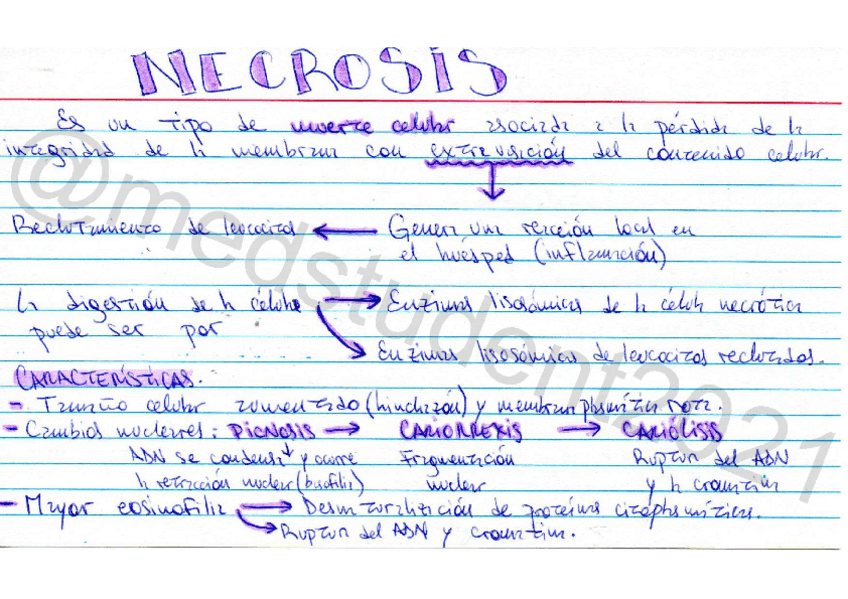 NECROSIS
Es un tipo de muerte celular asociada a la pérdida de la
integridad de la membrana con extravasición del contenido celular.
Reclutamiento de leucocitos ← Genera una reacción local en
el huésped (inflamación)
la digestión de la célula → Enzimas lisosómicas de la célula necrótica
puede ser por
→ Enzimas lisosómicas de leucocitos reclutados.
CARACTERÍSTICAS.
- Tamaño celular aumentado (hinchazón) y membrana plasmática rota.
- Cambios nucleares: PICNOSIS → CARIORREXIS → CARIÓLISIS
ADN se condensa ↓ y ocurre Fragmentación Ruptura del ADN
la retracción nuclear (basofilia) nuclear y la cromatina
- Mayor eosinofilia → Desnaturalización de proteínas citoplasmáticas.
→ Ruptura del ADN y cromatina.
@medstudent2021